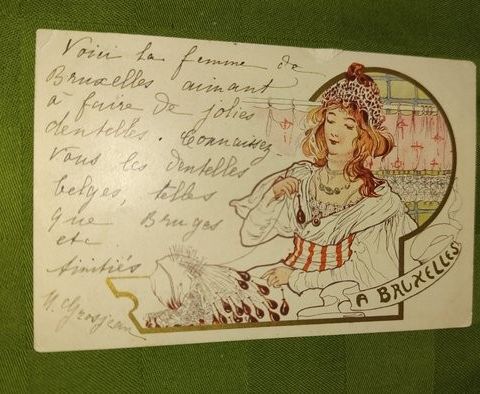 Voici la femme de
Bruxelles aimant
à faire de jolies
dentelles. Connaissez-
Vous les dentelles
belges, telles
que Bruges
etc
Amitiés
M. Grosjean
A BRUXELLES